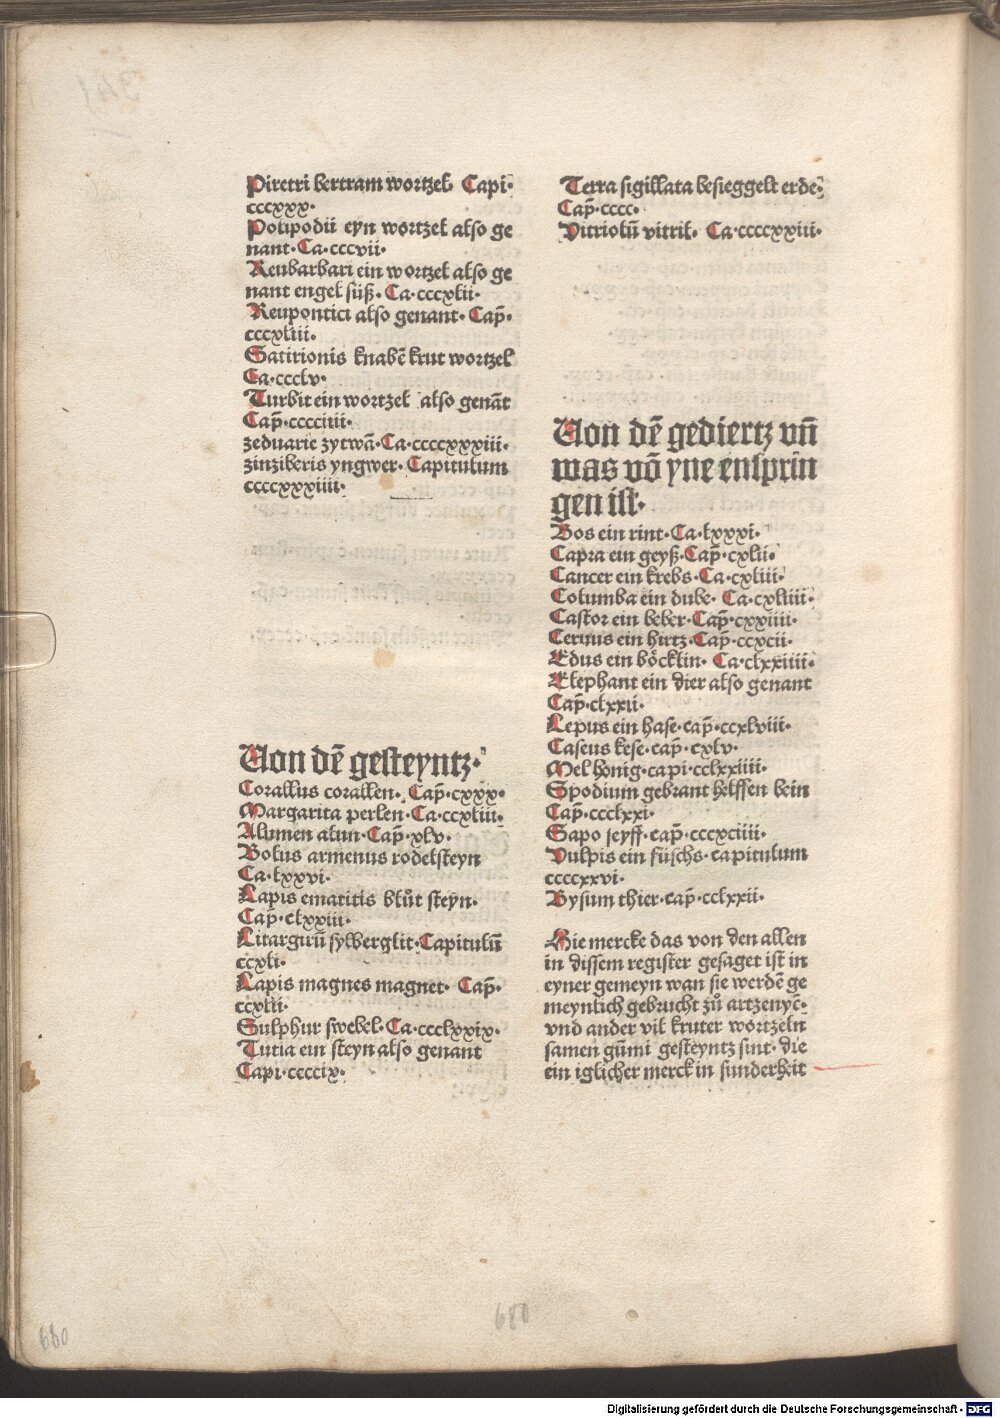 Piretri bertram wortzel· Capi·
cccxxx·
Polipodii eyn wortzel also ge
nant·Ca·cccvii·
Reubarbari ein wortzel also ge
nant engel süß·Ca·cccxlii·
Reupontici also genant· Cap̃·
cccxliii·
Satirionis knabē krut wortzel
Ca·ccclv·
Turbit ein wortzel also genāt
Cap̃·cccciiii·
zeduarie zytwā·Ca·ccccxxxiii·
zinziberis yngwer·Capitulum
ccccxxxiiii·
Uon dē gesteyntz·
Corallus corallen· Cap̃·cxxx·
Margarita perlen·Ca·ccxliii·
Alumen alun·Cap̃·xlv·
Bolus armenus rodelsteyn
Ca·lxxvi·
Lapis ematitis blůt steyn·
Cap̃·clxxiii·
Litargirū sylberglit·Capitulū
ccxli·
Lapis magnes magnet· Cap̃·
ccxlii·
Sulphur swebel·Ca·ccclxxix·
Tutia ein steyn also genant
Capi·ccccix·
Terra sigillata besieggelt erde·
Cap̃·cccc·
Vitriolū vitril· Ca·ccccxxiii·
Uon dē gediertz vñ
was vō yne ensprin
gen ist·
Bos ein rint·Ca·lxxxi·
Capra ein geyß·Cap̃·cxlii·
Cancer ein krebs·Ca·cxliii·
Columba ein dube· Ca·cxliiii·
Castor ein beber·Cap̃·cxxiiii·
Ceruus ein hirtz·Cap̃·ccxcii·
Edus ein böcklin· Ca·clxxiiii·
Elephant ein dier also genant
Cap̃·clxxii·
Lepus ein hase·cap̃·ccxlviii·
Caseus kese·cap̃·cxlv·
Mel honig·capi·cclxxiiii·
Spodium gebrant helffen bein
Cap̃·ccclxxi·
Sapo seyff·cap̃·cccxciiii·
Vulpis ein füschs·capitulum
ccccxxvi·
Bysum thier·cap̃·cclxxii·
Hie mercke das von den allen
in dissem register gesaget ist in
eyner gemeyn wan sie werdē ge
meynlich gebrucht zů artzenyē·
vnd ander vil kruter wortzeln
samen gūmi gesteyntz sint·die
ein iglicher merck in sunderheit
680
680
Digitalisierung gefördert durch die Deutsche Forschungsgemeinschaft - DFG